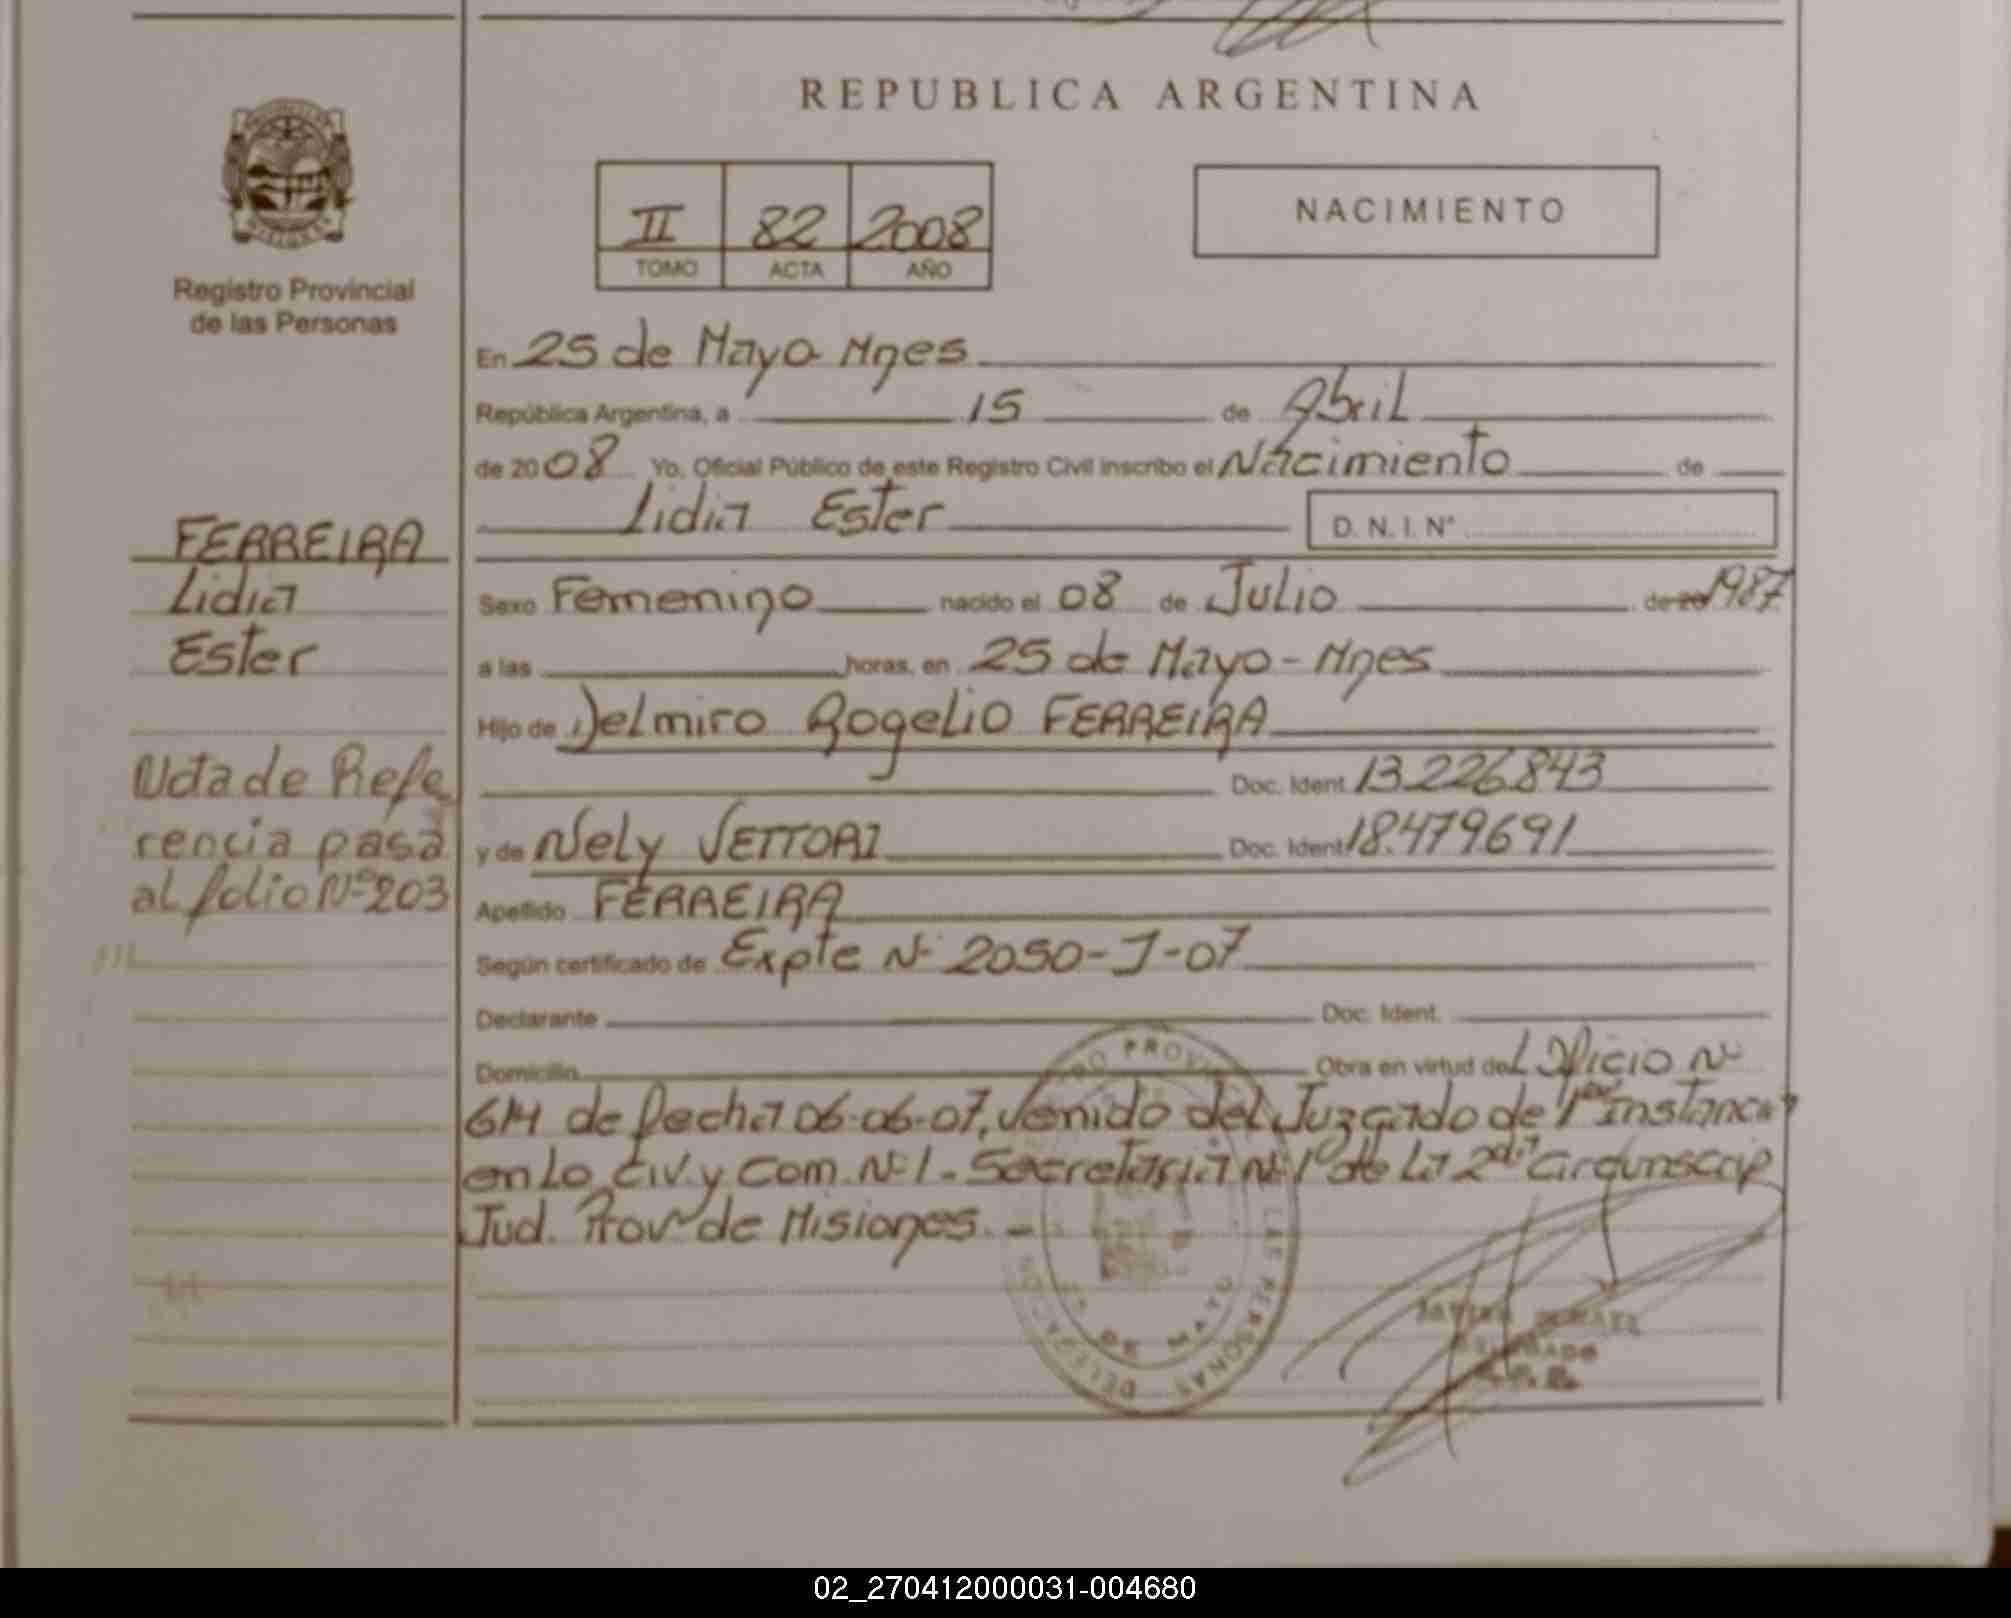 REPUBLICA ARGENTINA
Registro Provincial
de las Personas
II 82 2008
TOMO ACTA AÑO
NACIMIENTO
FERREIRA
Lidia
Ester
Nota de Refe
rencia pasa
al folio Nº 203
En 25 de Mayo Mnes
República Argentina, a 15 de Abril
de 2008 Yo, Oficial Público de este Registro Civil inscribo el Nacimiento de
Lidia Ester D. N. I. Nº
Sexo Femenino nacido el 08 de Julio de 20 1987
a las horas, en 25 de Mayo - Mnes
Hijo de Delmiro Rogelio FERREIRA
Doc. Ident. 13.226.843
y de Nely VETTORI Doc. Ident. 18.479.691
Apellido FERREIRA
Según certificado de Expte Nº 2050-J-07
Declarante Doc. Ident.
Domicilio Obra en virtud del Oficio Nº
614 de fecha 06-06-07, venido del Juzgado de 1ra Instancia
en Lo Civ. y Com. Nº 1 - Secretaria Nº 1 de La 2da Circunscrip
Jud. Prov de Misiones. -
DELEGADO
02_270412000031-004680